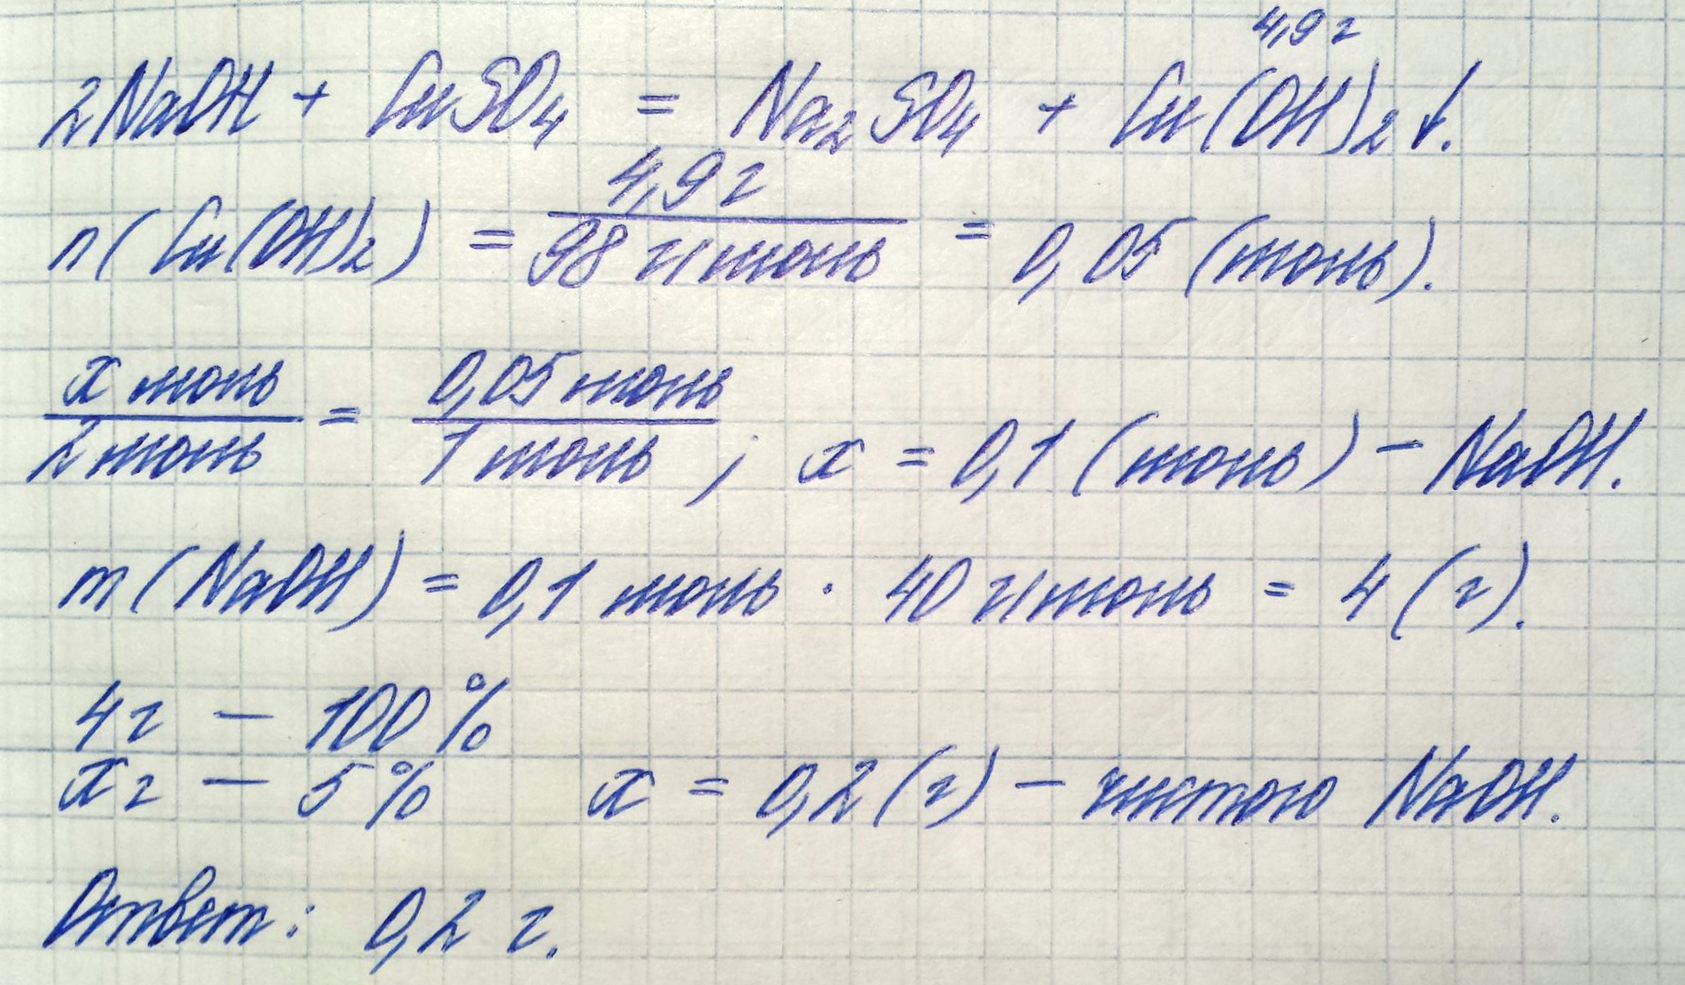 4,9 г
2NaOH + CuSO₄ = Na₂SO₄ + Cu(OH)₂↓.
n(Cu(OH)₂) = 4,9 г / 98 г/моль = 0,05 (моль).
x моль / 2 моль = 0,05 моль / 1 моль ; x = 0,1 (моль) – NaOH.
m(NaOH) = 0,1 моль · 40 г/моль = 4 (г).
4г – 100%
xг – 5% x = 0,2 (г) – чистого NaOH.
Ответ: 0,2 г.